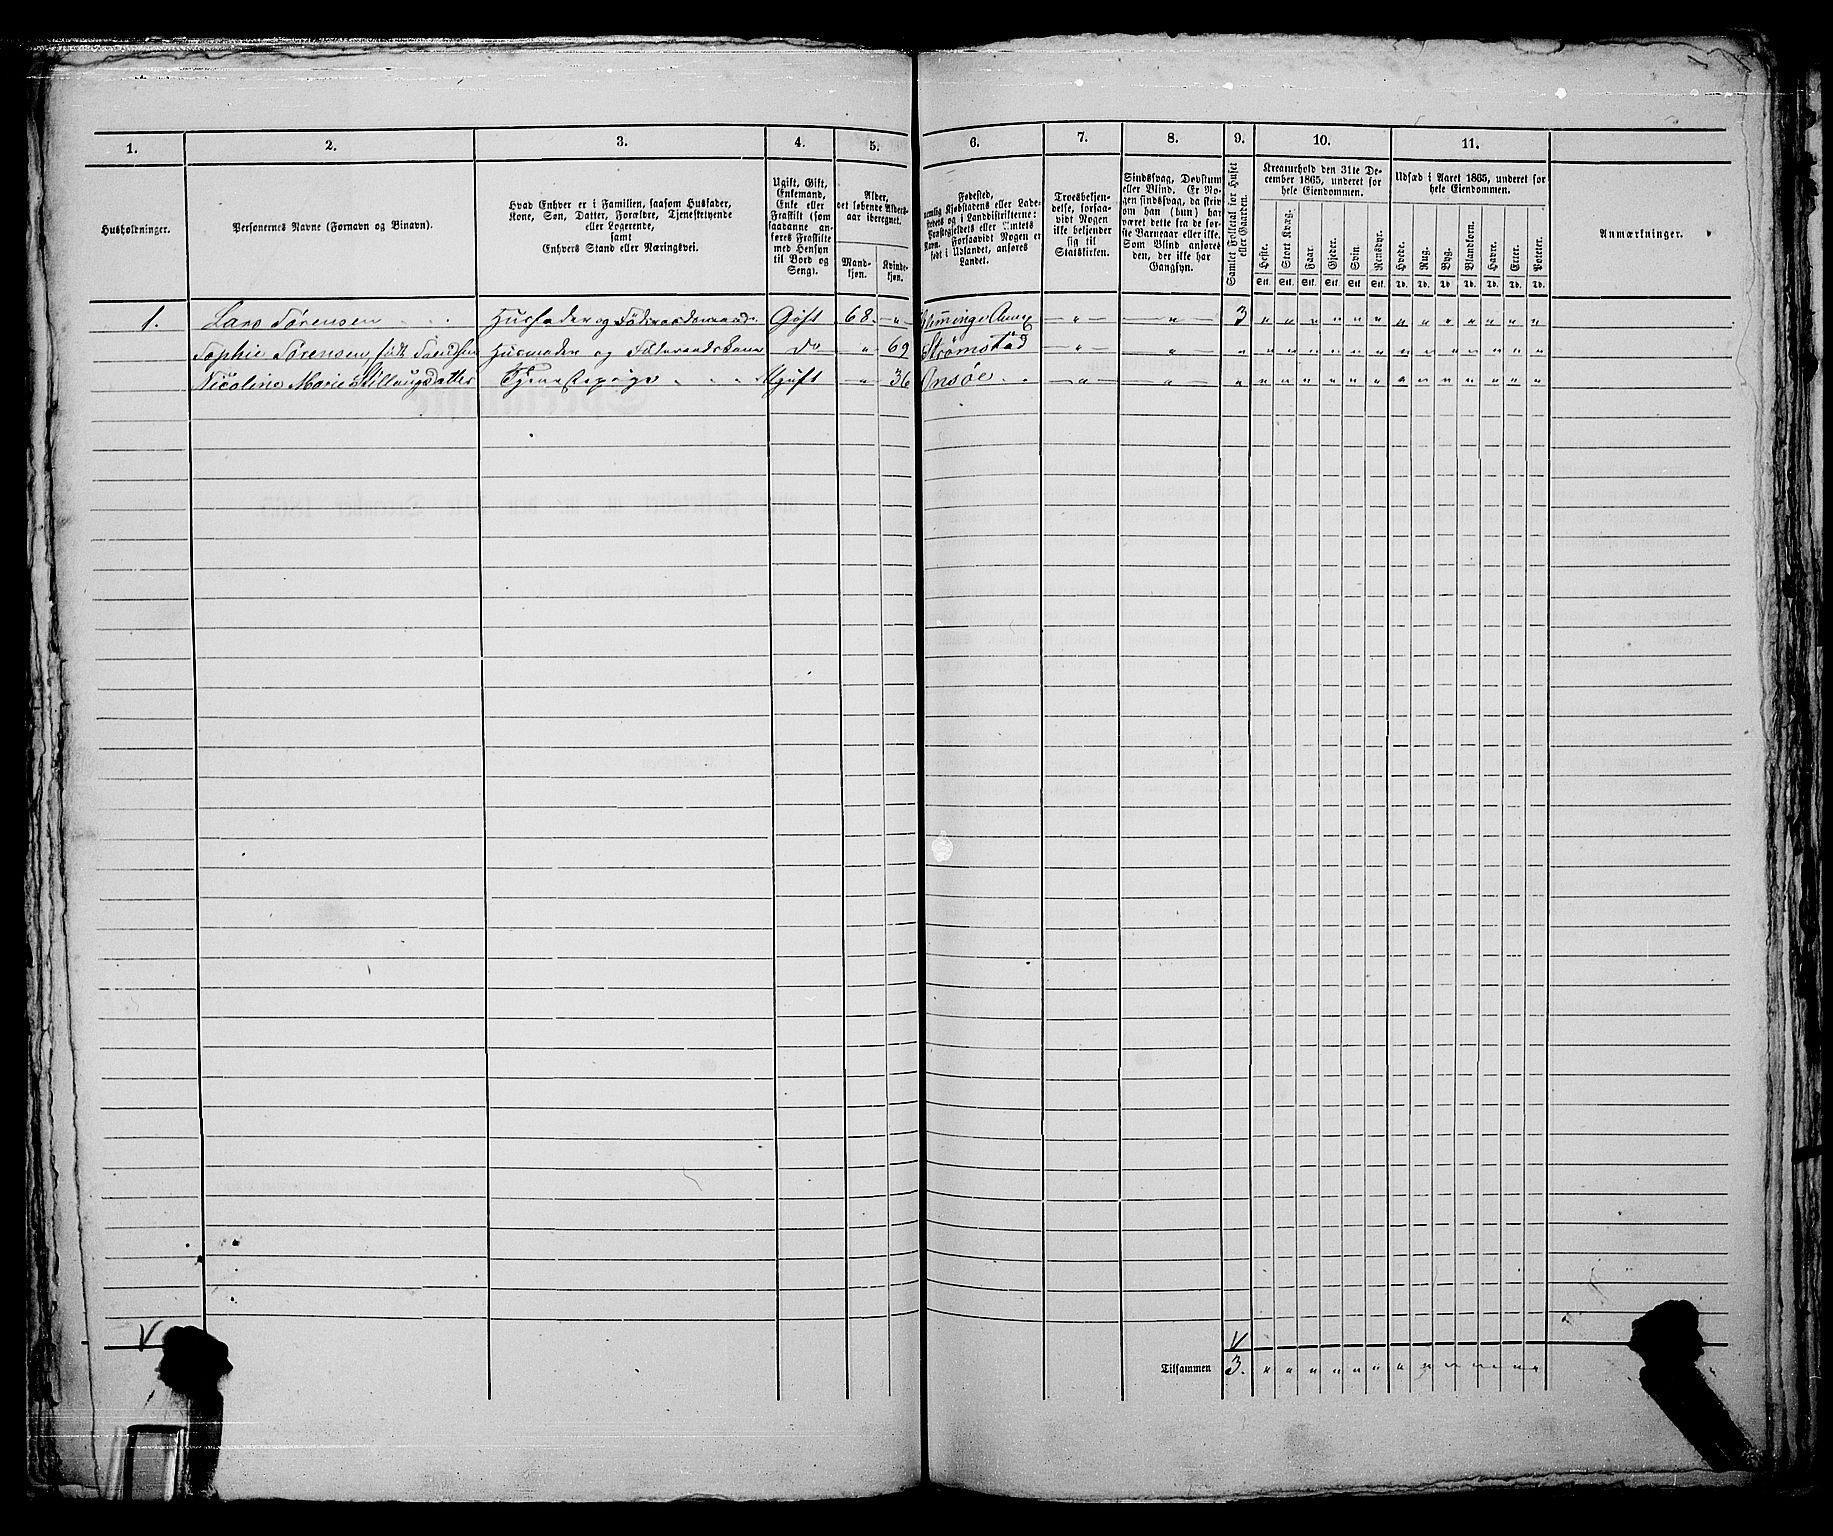 1. 2. 3. 4. 5. 6. 7. 8. 9. 10. 11.
Husholdninger.
Personernes Navne (Fornavn og Binavn).
Hvad Enhver er i Familien, saasom Husfader,
Kone, Søn, Datter, Forældre, Tjenestetyende
eller Logerende,
samt
Enhvers Stand eller Næringsvei.
Ugift, Gift,
Enkemand,
Enke eller
Fraskilt (som
saadanne an-
føres Fraskilte
med Hensyn
til Bord og
Seng).
Alder,
det løbende Alders-
aar iberegnet.
Mand-
kjøn.
Kvinde-
kjøn.
Fødested,
nemlig Kjøbstadens eller Lade-
stedets og i Landdistrikterne:
Præstegjeldets eller Amtets
Navn. Forsaavidt Nogen er
født i Udlandet, anføres
Landet.
Troesbekjen-
delse, forsaa-
vidt Nogen
ikke bekjender
sig til
Statskirken.
Sindssvag, Døvstum
eller Blind. Er No-
gen sindssvag, da skriv
om han (hun) har
været dette fra de før-
ste Barneaar eller ikke.
Som Blind anføres
den, der ikke har
Gangsyn.
Samlet Folketal for Huset
eller Gaarden.
Kreaturhold den 31te De-
cember 1865, underet for
hele Eiendommen.
Heste. Stort Kvæg. Faar. Gjeder. Svin. Rensdyr.
Stk. Stk. Stk. Stk. Stk. Stk.
Udsæd i Aaret 1865, underet for
hele Eiendommen.
Hvede. Rug. Byg. Blandkorn. Havre. Erter. Poteter.
Td. Td. Td. Td. Td. Td. Td.
Anmærkninger.
1. Lars Sørensen Husfader og Føderaadsmand Gift 68. " " " 3 " " " " " " " " " " " " "
Sophie Sørensen, født Husmoder og Føderaadskone do " 69 Strømstad " " " " " " " " " " " " " " " "
Nicoline Marie Tjenestepige Ugift " 36 Onsøe " " " " " " " " " " " " " " " "
V V
Tilsammen 3. " " " " " " " " " " " " "